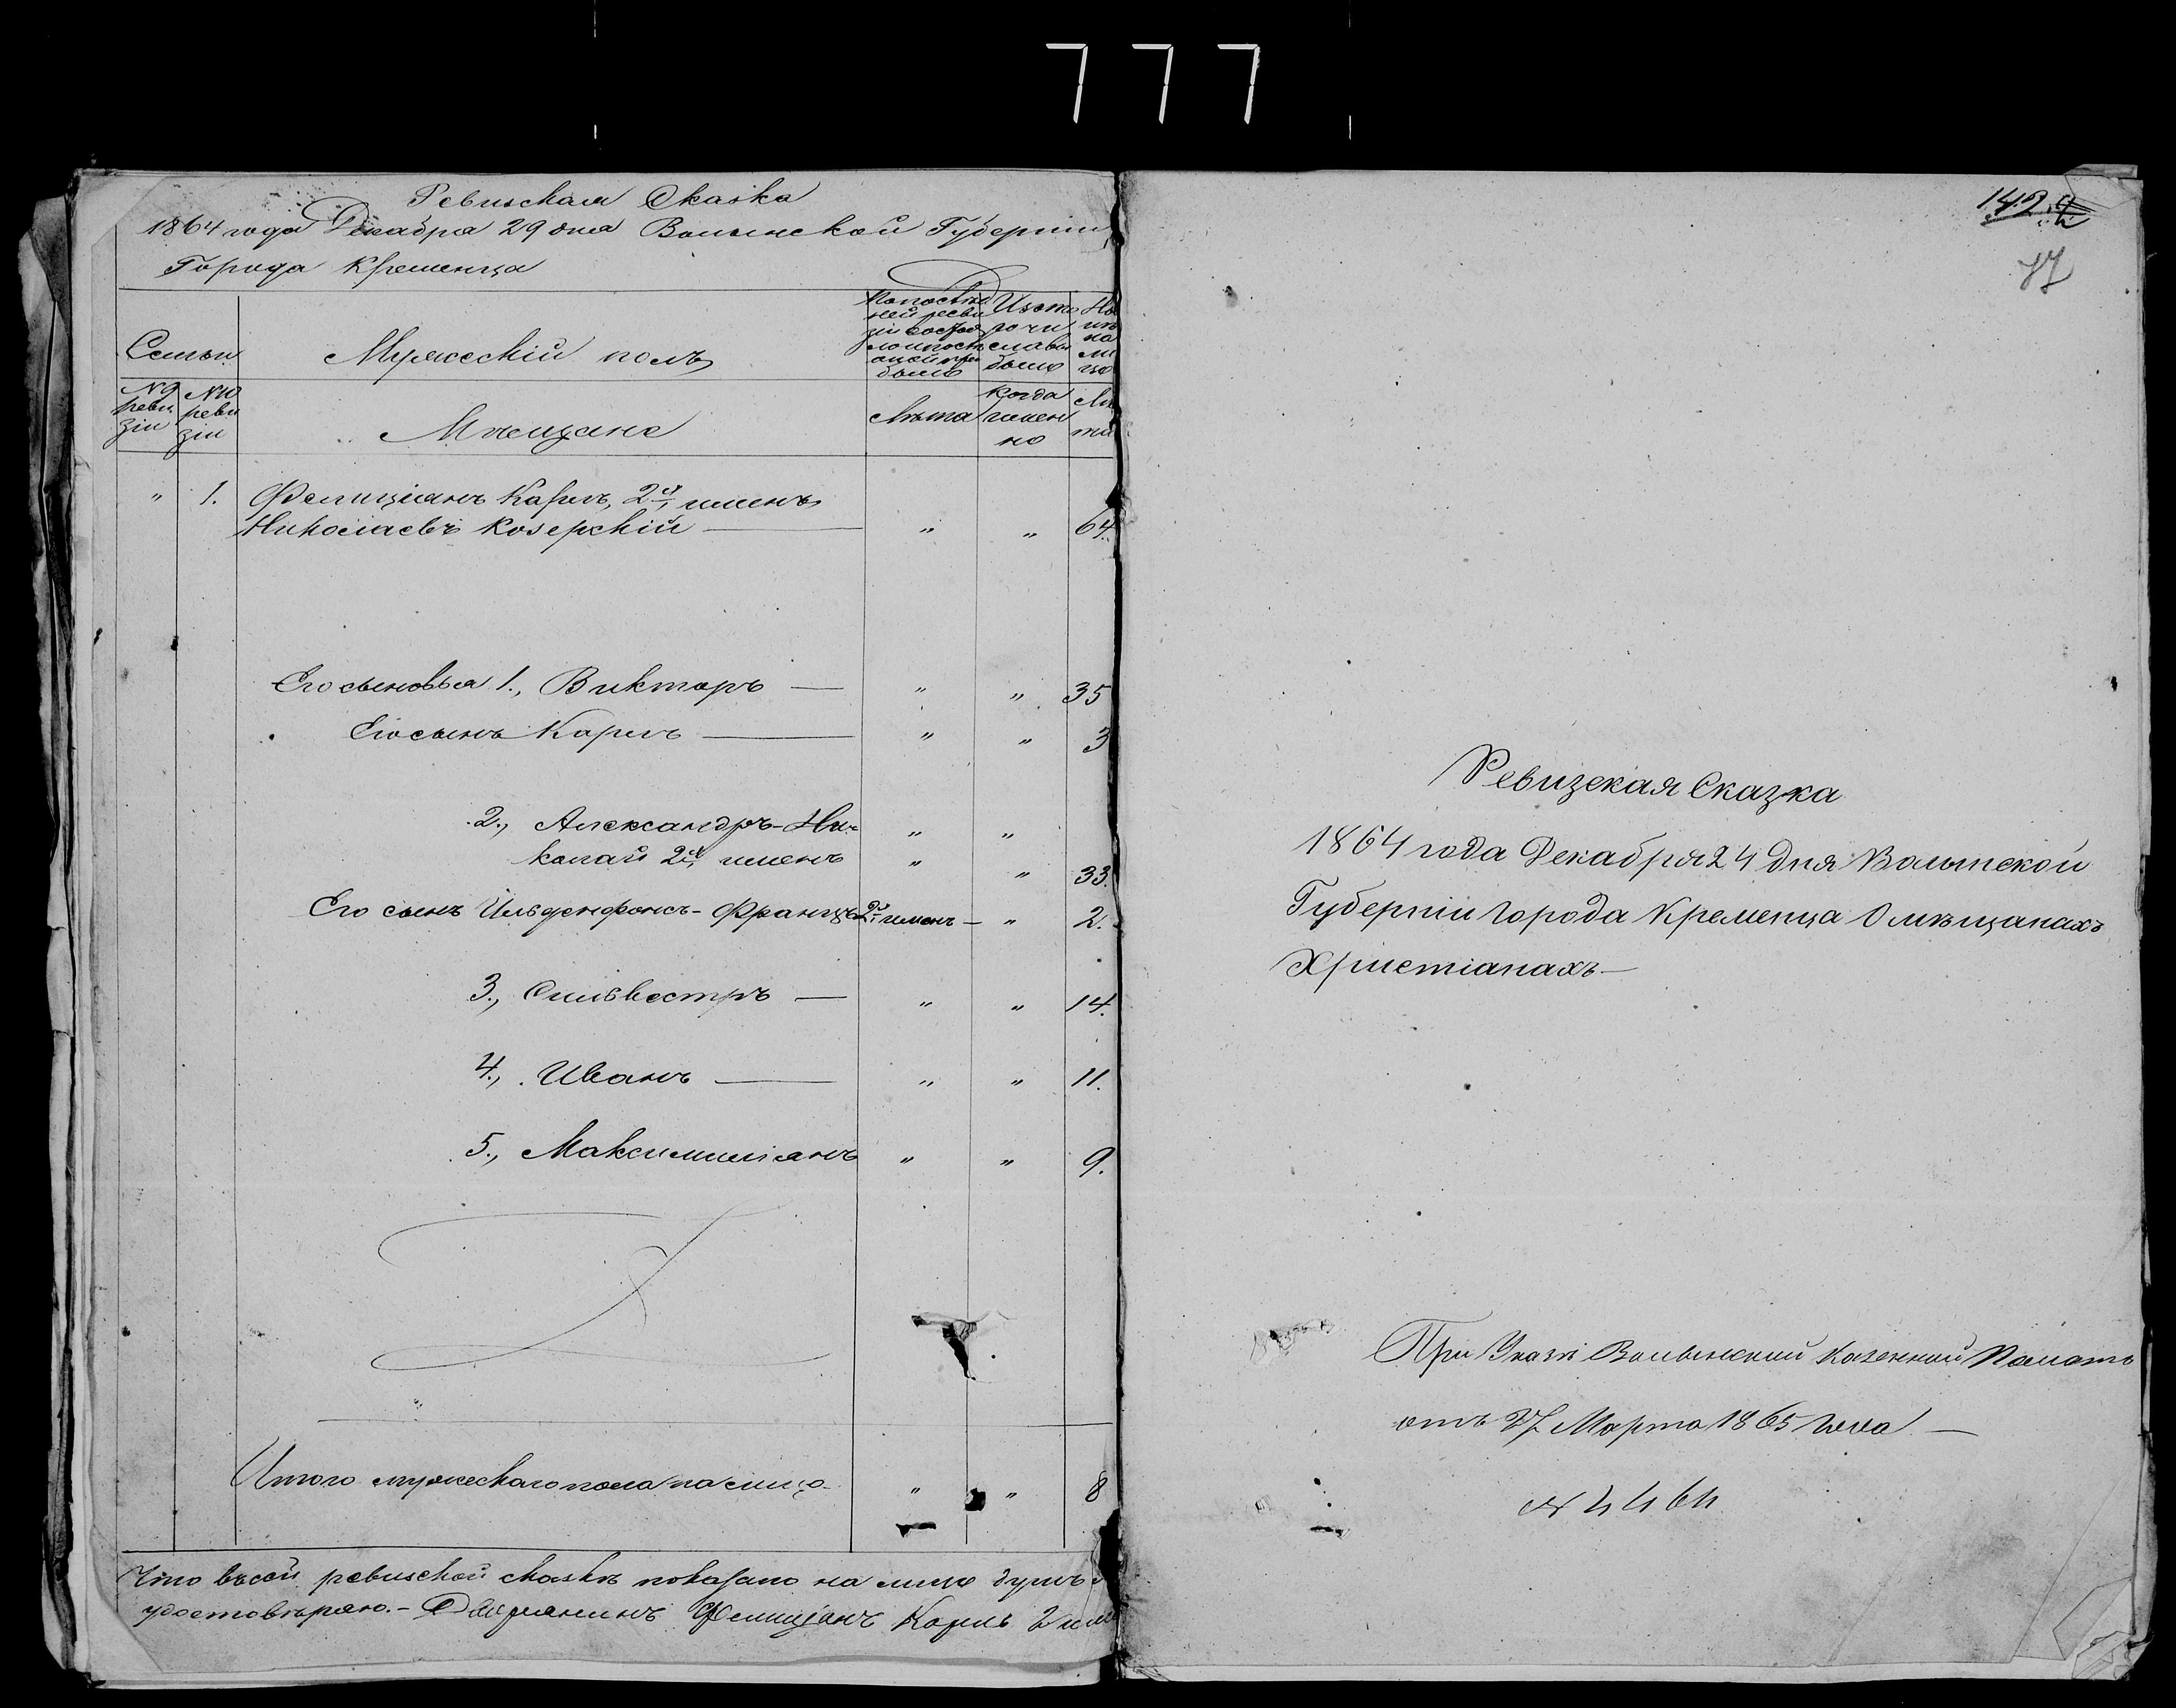 777
Ревизская Сказка
1864 года Декабря 29 дня Волынской Губерніи
Города Кременца
Семьи
Мужескій полъ
По послѣд
ней реви
зіи состоя
было
Изъ то
го чи
сла вы
было
Ны
нѣ
на
ли
цо
№ 9
реви
зіи
№ 10
реви
зіи
Мѣщане
Лѣта
Когда
имен
но
Лѣ
та
" 1. Фелиціанъ Карлъ, 2хъ именъ
Николаевъ Козерскій — " " 64.
Его сыновья 1., Викторъ — " " 35
Его сынъ Карлъ — " " 3
2., Александръ-Ни- " "
колай 2хъ именъ " " 33.
Его сынъ Ильдефонсъ-Францъ 2хъ именъ — " 2.
3., Сильвестръ — " " 14.
4., Иванъ — " " 11.
5., Максимиліанъ " " 9.
Итого мужескаго пола на лицо " " 8
Что въ сей ревиской сказкѣ показано на лицо душъ
удостовѣряю. — Фелиціанъ Карлъ 2 име
142
77
Ревизская Сказка
1864 года Декабря 24 дня Волынской
Губерніи города Кременца О мѣщанахъ
Христіанахъ —
При Указѣ Волынской Казенной Палаты
отъ 27 Марта 1865 года —
№ 4464